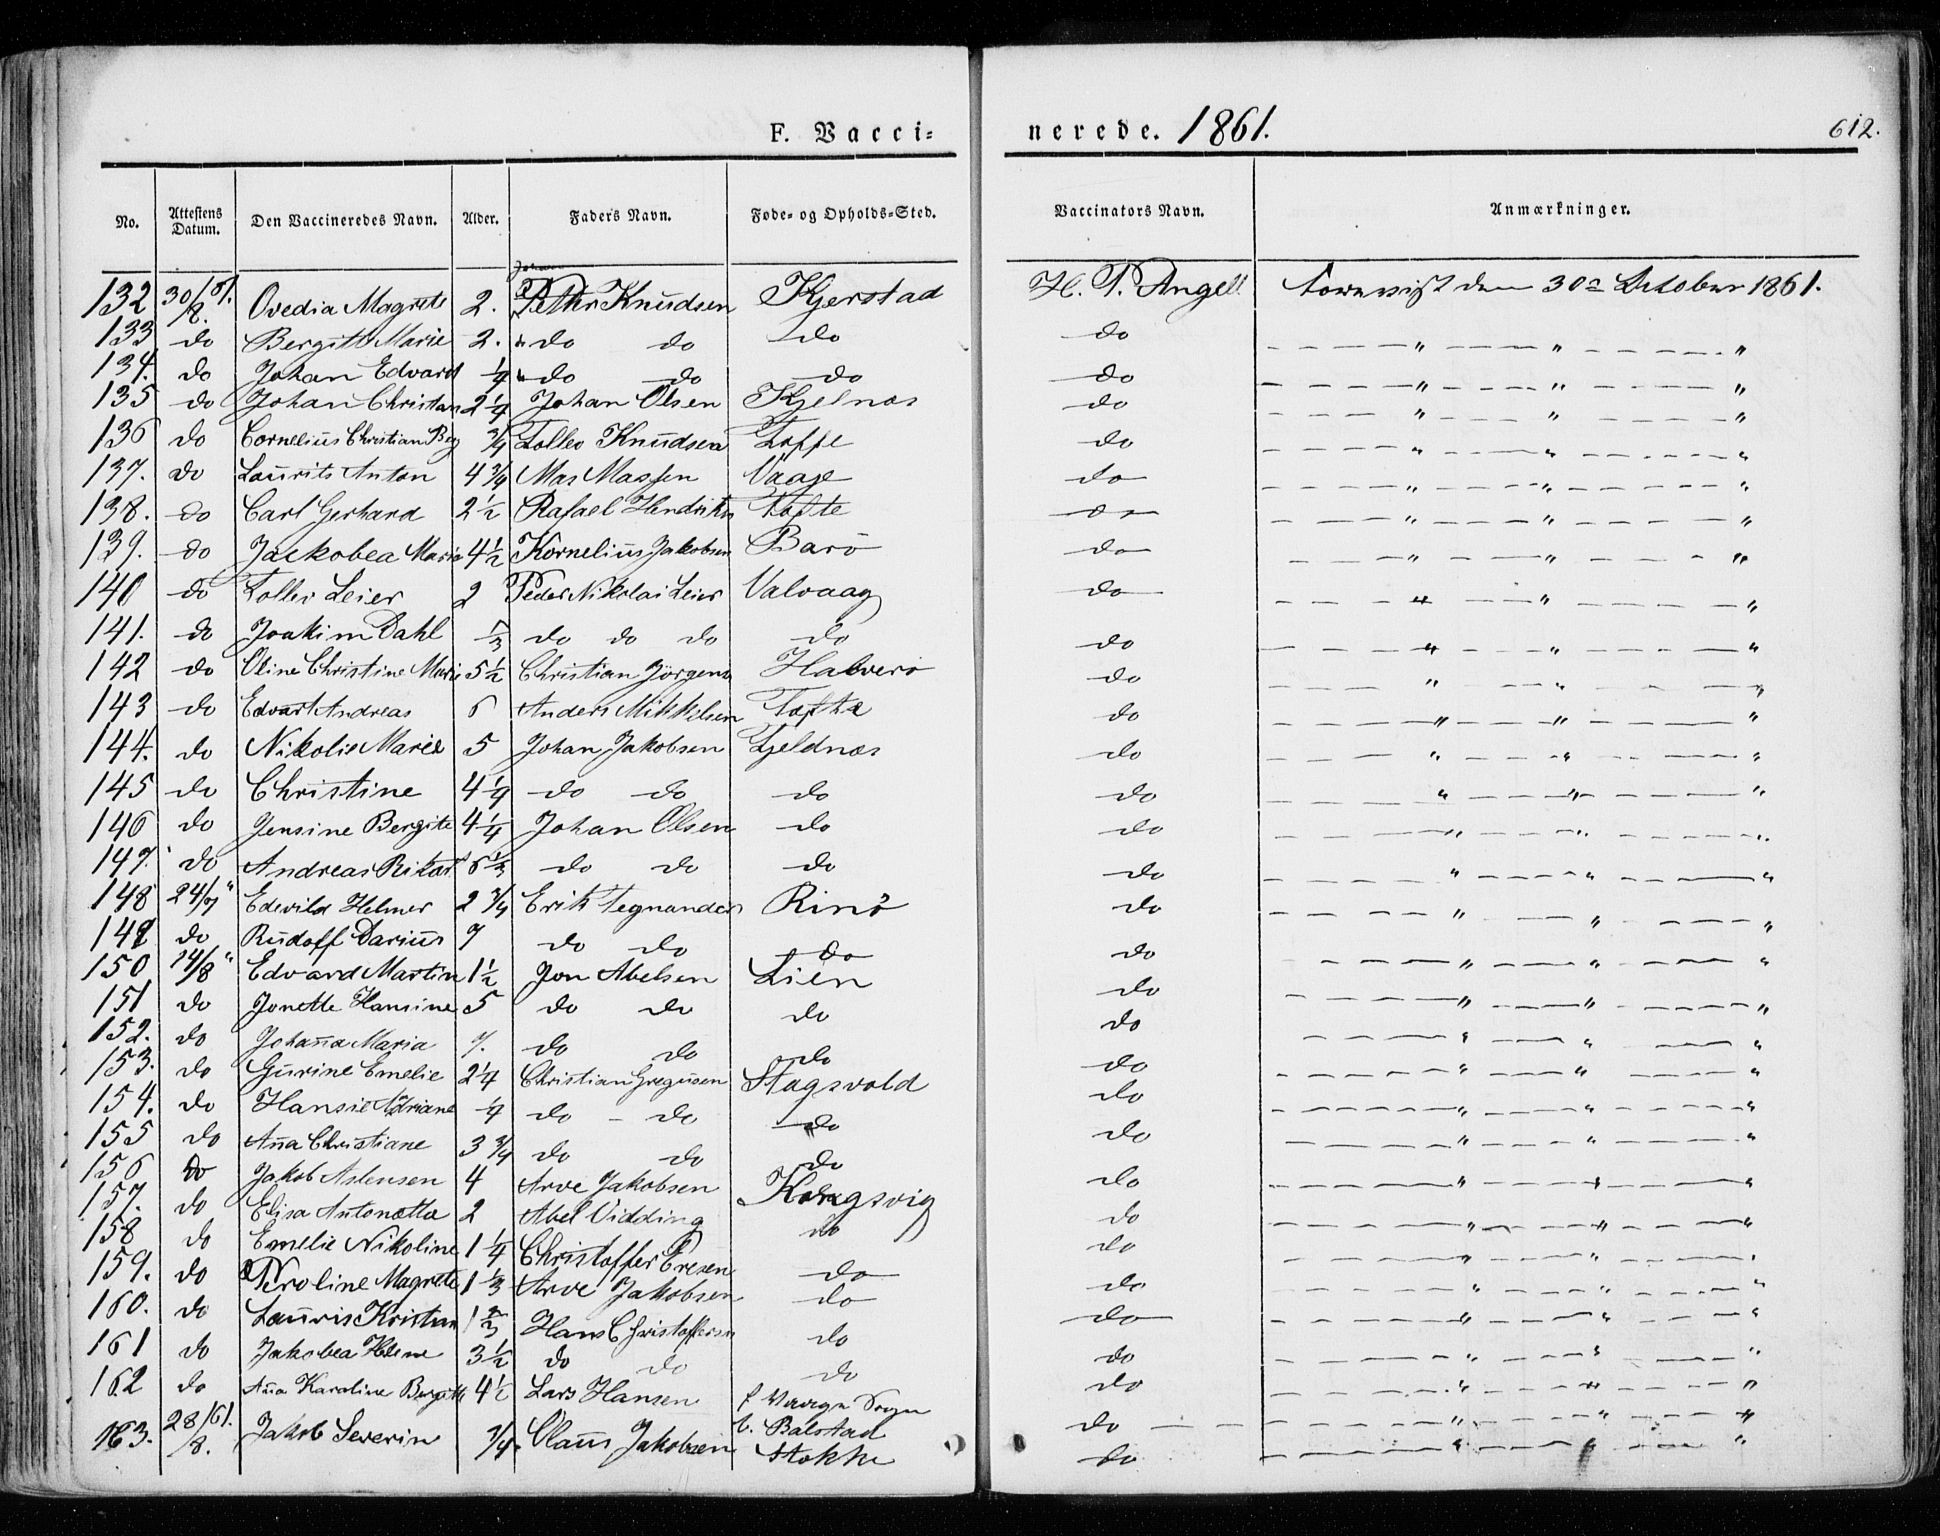 F. Vacci= nerede. 1861. 612.
No. Attestens Datum. Den Vaccineredes Navn. Alder. Faders Navn. Føde= og Opholds=Sted. Vaccinators Navn. Anmærkninger.
Johan
132 30/8 61. Ovedia Magrete 2. Pether Knudsen Kjerstad H. P. Angell 30 October 1861.
133 do Bergitte Marie 2. " do do do do — " — " — "
134. do Johan Edvard 1/4 " do do do do — " — " — "
135 do Johan Christian 2 1/4 Johan Olsen Kjelnæs do — " — " — "
136 do Cornelius Christian Berg 3/4 Tollev Knudsen Tofte do — " — " — "
137. do Laurits Anton 4 3/4 Mas Massen Vaage do — " — " — "
138. do Carl Gerhard 2 1/2 Rafael Hendriks Tofte do — " — " — "
139. do Jackobea Marie 4 1/2 Kornelius Jakobsen Barö do — " — " — "
140 do Tollev Leier 2 Peder Nikolai Leier Valvaag do — " — " — "
141. do Joakim Dahl 1/3 do do do do do — " — " — "
142 do Oline Christine Marie 5 1/2 Christian Jörgens Halverö do — " — " — "
143 do Edvart Andreas 6 Anders Mikkelsen Tofte do — " — " — "
144. do Nikolie Marie 5 Johan Jakobsen Tjeldnæs do — " — " — "
145 do Christine 4 1/4 do do do do — " — " — "
146 do Jensine Bergite 4 1/4 Johan Olsen do do — " — " — "
147. do Andreas Rikart 6 1/3 do do do do — " — " — "
148 24/7 " Edevild Helmer 2 3/4 Erik Tegnander Rinö do — " — " — "
149 do Rudolf Darius 7 do do do do — " — " — "
150 14/8 " Edvard Martin 1 1/2 Jon Abelsen Lien do — " — " — "
151 do Jonette Hansine 5 do do do do — " — " — "
152. do Johanna Maria 7. do do do do — " — " — "
153. do Gurine Emelie 2 1/4 Christian Gregusen Stagsvold do — " — " — "
154. do Hansie Adriane 1/4 do – do do do — " — " — "
155 do Anna Christiane 3 3/4 do do do do — " — " — "
156 do Jakob Aslensen 4 Arve Jakobsen Kongsvig do — " — " — "
157. do Elisa Antonetta 2 Abel Vidding do do — " — " — "
158 do Emelie Nikoline 1 1/4 Christoffer Eresen do do — " — " — "
159. do Peroline Magrete 1 1/3 Arve Jakobsen do do — " — " — "
160. do Lauris Kristian 1 2/3 Hans Christoffersen do do — " — " — "
161 do Jakobea Helene 3 1/2 do do do do — " — " — "
162 do Anna Karoline Bergitte 4 1/2 Lars Hansen f Vaage Sogn b. Balstad do — " — " — "
163. 28/8 61. Jakob Severin 3/4. Claus Jakobsen Stokke do — " — " — "